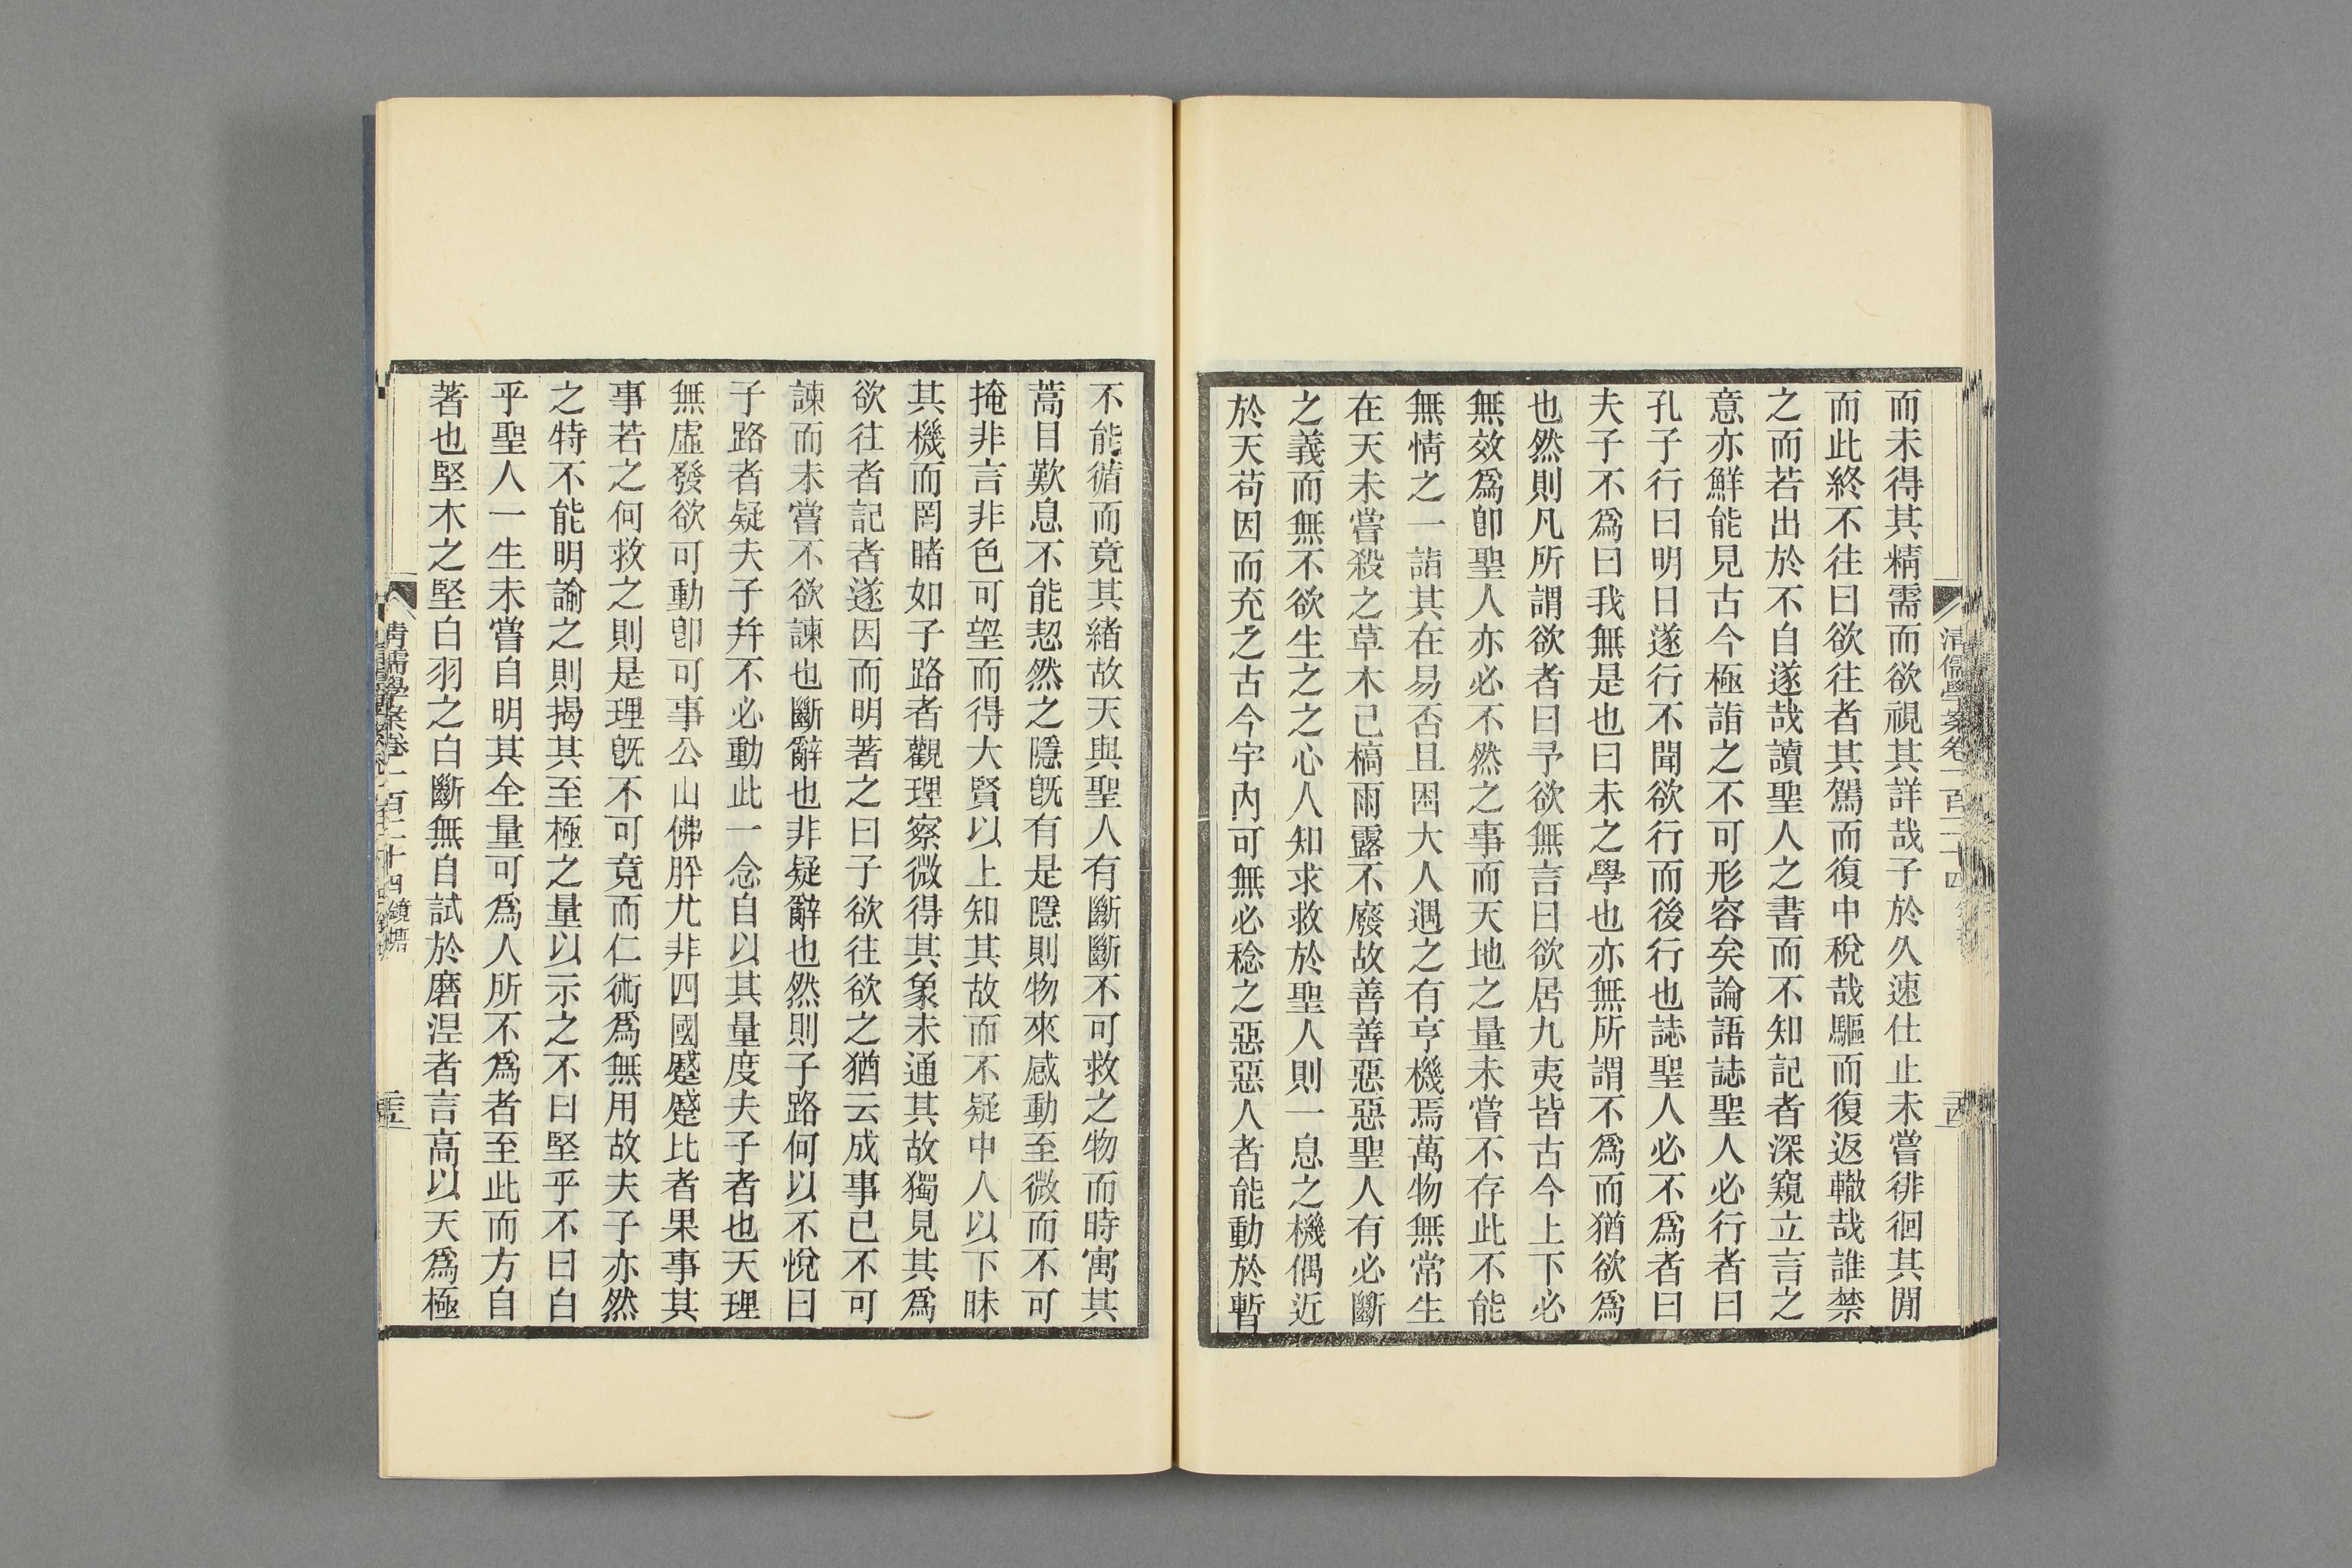 而未得其精需而欲視其詳哉子於久速仕止未嘗徘徊其閒
而此終不往曰欲往者其駕而復中稅哉驅而復返轍哉誰禁
之而若出於不自遂哉讀聖人之書而不知記者深窺立言之
意亦鮮能見古今極詣之不可形容矣論語誌聖人必行者曰
孔子行曰明日遂行不聞欲行而後行也誌聖人必不爲者曰
夫子不爲曰我無是也曰未之學也亦無所謂不爲而猶欲爲
也然則凡所謂欲者曰予欲無言曰欲居九夷皆古今上下必
無效爲卽聖人亦必不然之事而天地之量未嘗不存此不能
無情之一詣其在易否且困大人遇之有亨機焉萬物無常生
在天未嘗殺之草木已槁雨露不廢故善善惡惡聖人有必斷
之義而無不欲生之之心人知求救於聖人則一息之機偶近
於天苟因而充之古今宇內可無必稔之惡惡人者能動於暫
清儒學案卷一百二十四
不能循而竟其緒故天與聖人有斷斷不可救之物而時寓其
蒿目歎息不能恝然之隱旣有是隱則物來感動至微而不可
掩非言非色可望而得大賢以上知其故而不疑中人以下昧
其機而罔睹如子路者觀理察微得其象未通其故獨見其爲
欲往者記者遂因而明著之曰子欲往欲之猶云成事已不可
諫而未嘗不欲諫也斷辭也非疑辭也然則子路何以不悅曰
子路者疑夫子幷不必動此一念自以其量度夫子者也天理
無虛發欲可動卽可事公山佛肸尤非四國蹙蹙比者果事其
事若之何救之則是理旣不可竟而仁術爲無用故夫子亦然
之特不能明諭之則揭其至極之量以示之不曰堅乎不曰白
乎聖人一生未嘗自明其全量可爲人所不爲者至此而方自
著也堅木之堅白羽之白斷無自試於磨涅者言高以天爲極
清儒學案卷一百二十四 鏡塘